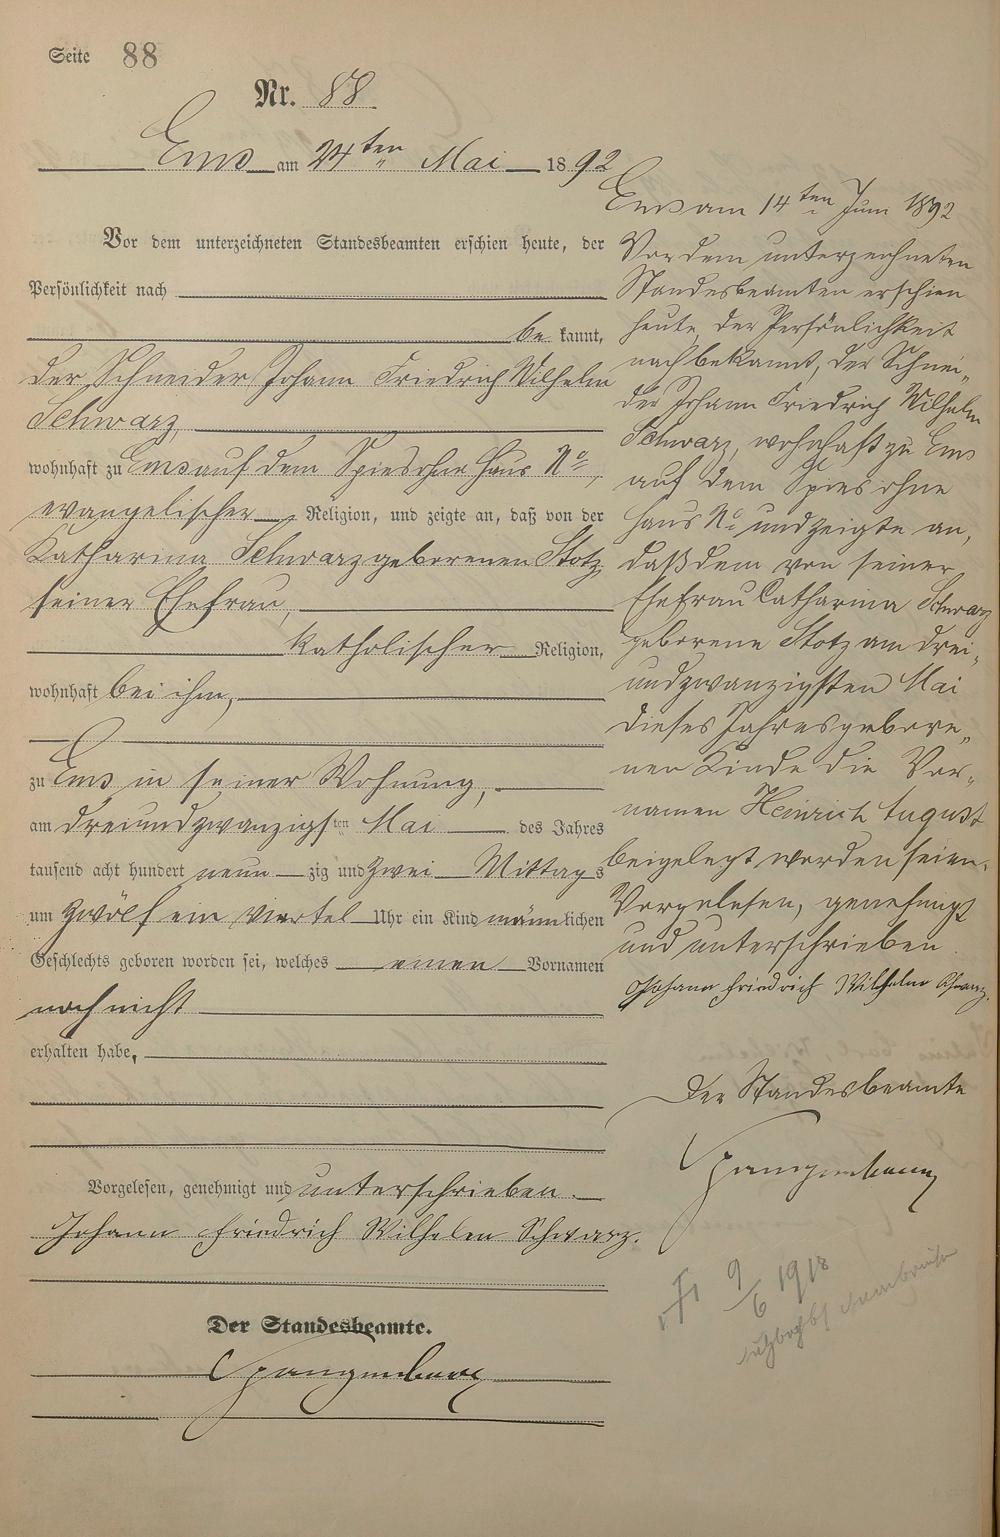 Seite 88
Nr. 88
Ems am 24ten Mai 1892
Vor dem unterzeichneten Standesbeamten erschien heute, der
Persönlichkeit nach
be kannt,
der Schneider Johann Friedrich Wilhelm
Schwarz,
wohnhaft zu Ems auf dem Spies ohne Haus No,
evangelischer Religion, und zeigte an, daß von der
Katharina Schwarz geborenen Stotz,
seiner Ehefrau,
katholischer Religion,
wohnhaft bei ihm,
zu Ems in seiner Wohnung,
am dreiundzwanzigsten Mai des Jahres
tausend acht hundert neun zig und zwei Mittags
um zwölf ein viertel Uhr ein Kind männlichen
Geschlechts geboren worden sei, welches einen Vornamen
noch nicht
erhalten habe,
Vorgelesen, genehmigt und unterschrieben.
Johann Friedrich Wilhelm Schwarz.
Der Standesbeamte.
Spangenberg
Ems am 14ten Juni 1892
Vor dem unterzeichneten
Standesbeamten erschien
heute, der Persönlichkeit
nach bekannt, der Schnei-
der Johann Friedrich Wilhelm
Schwarz, wohnhaft zu Ems
auf dem Spies ohne
Haus No und zeigte an,
daß dem von seiner
Ehefrau Catharina Schwarz
geborene Stotz am drei-
undzwanzigsten Mai
dieses Jahres gebore-
nen Kinde die Vor-
namen Heinrich August
beigelegt worden seien.
Vorgelesen, genehmigt
und unterschrieben.
Johann Friedrich Wilhelm Schwarz.
Der Standesbeamte
Spangenberg
9/6 1918